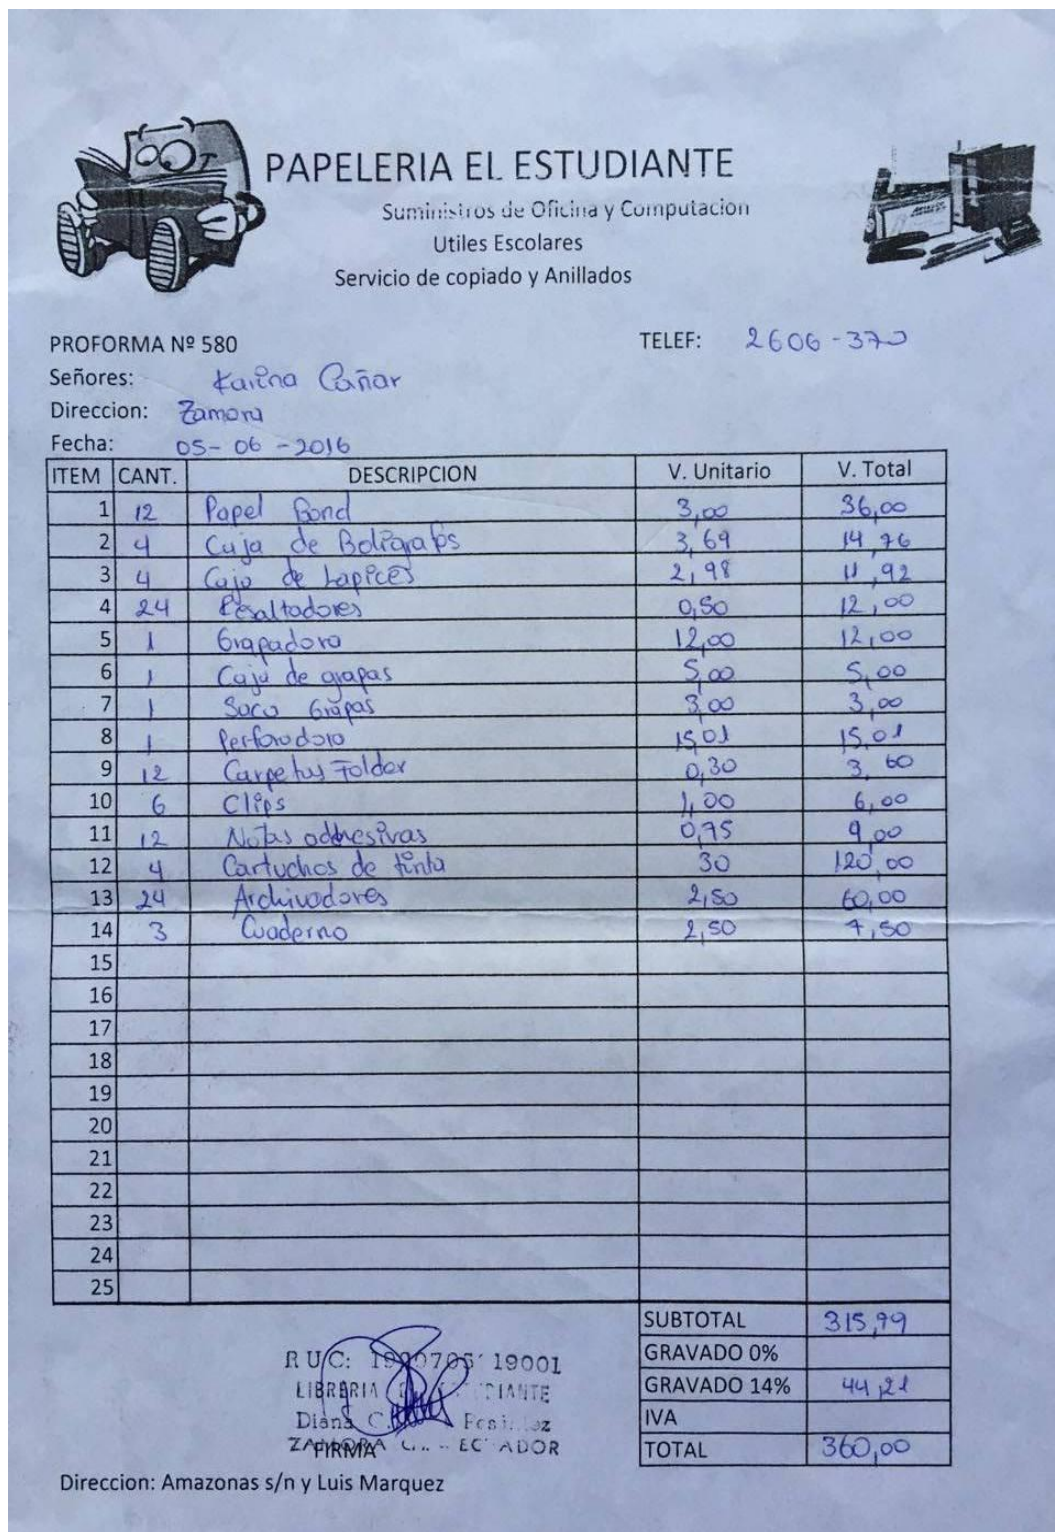 PAPELERIA EL ESTUDIANTE
Suministros de Oficina y Computacion
Utiles Escolares
Servicio de copiado y Anillados
PROFORMA Nº 580 TELEF: 2606-370
Señores: Karina Cañar
Direccion: Zamora
Fecha: 05-06-2016
ITEM CANT. DESCRIPCION V. Unitario V. Total
1 12 Papel Bond 3,00 36,00
2 4 Caja de Boligrafos 3,69 14,76
3 4 Caja de Lapices 2,98 11,92
4 24 Resaltadores 0,50 12,00
5 1 Grapadora 12,00 12,00
6 1 Caja de grapas 5,00 5,00
7 1 Saca Grapas 3,00 3,00
8 1 Perforadora 15,01 15,01
9 12 Carpetas Folder 0,30 3,60
10 6 Clips 1,00 6,00
11 12 Notas adhesivas 0,75 9,00
12 4 Cartuchos de tinta 30 120,00
13 24 Archivadores 2,50 60,00
14 3 Cuaderno 2,50 7,50
15
16
17
18
19
20
21
22
23
24
25
SUBTOTAL 315,79
GRAVADO 0%
GRAVADO 14% 44,21
IVA
TOTAL 360,00
RUC: 19001
LIBRERIA
Diana
ZAMORA
FIRMA
Direccion: Amazonas s/n y Luis Marquez